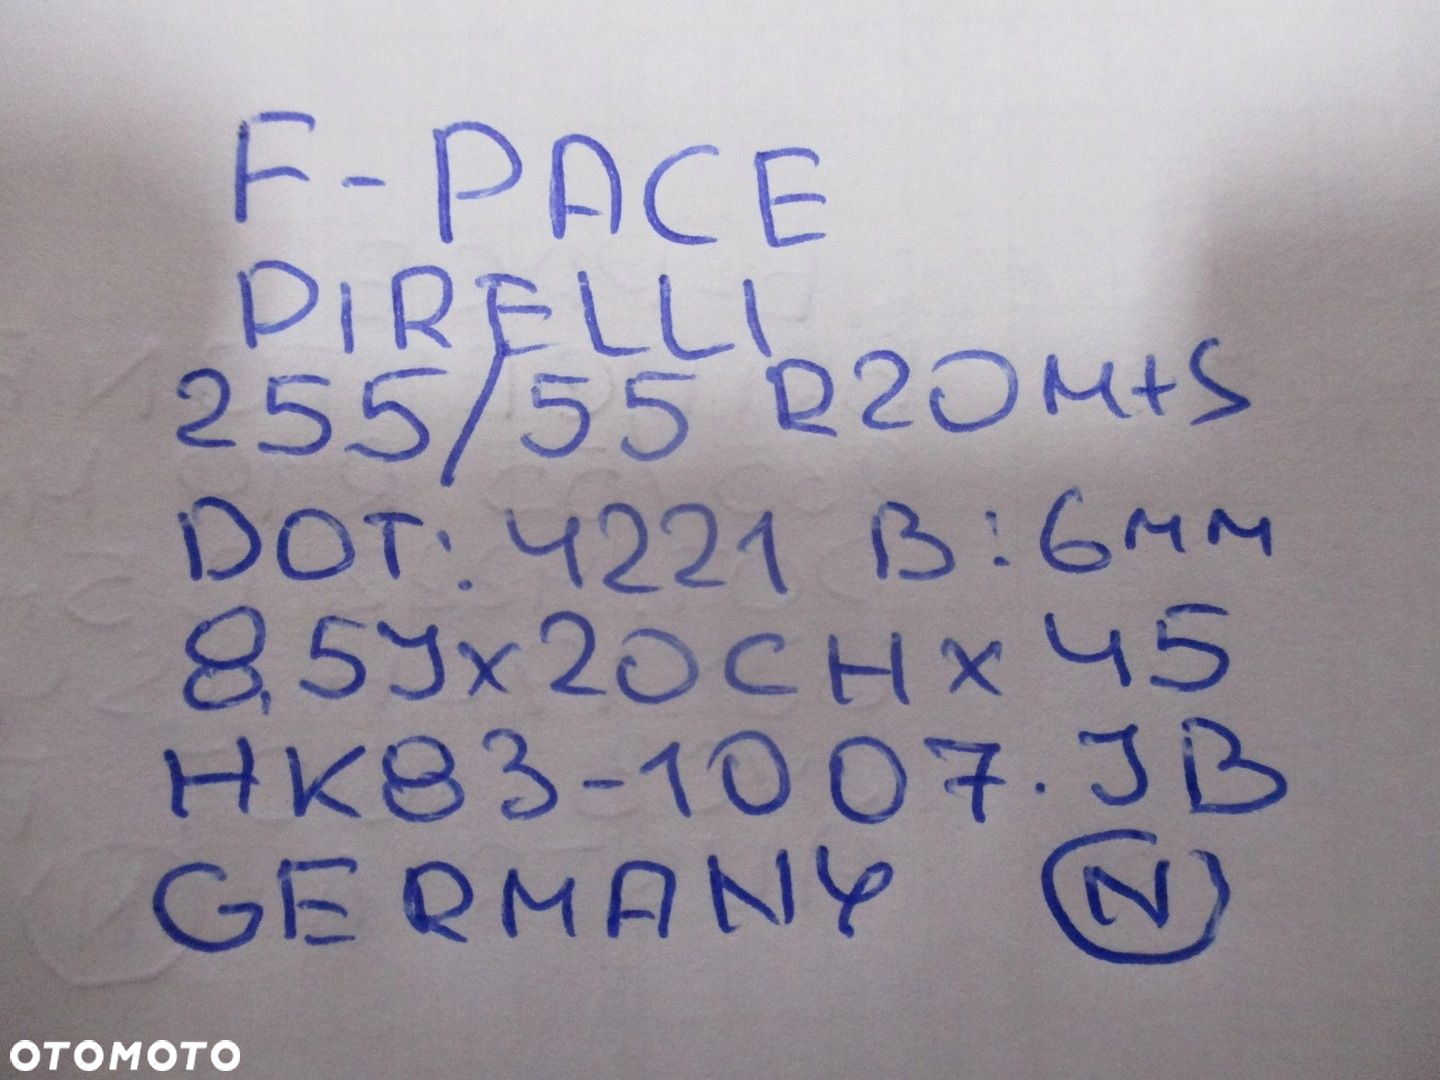 F-PACE
PIRELLI
255/55 R20 M+S
DOT: 4221 B: 6mm
8,5Jx20CHx45
HK83-1007.JB
GERMANY N
OTOMOTO